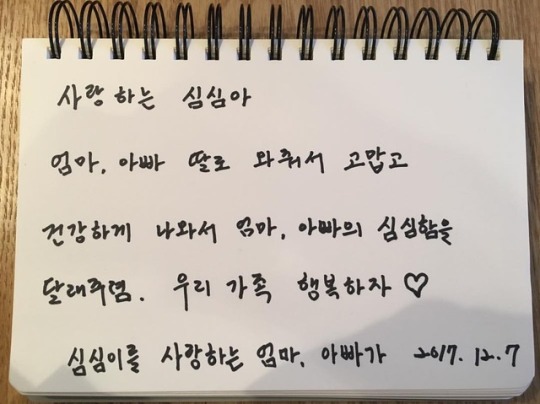 사랑하는 심심아
엄마, 아빠 딸로 와줘서 고맙고
건강하게 나와서 엄마, 아빠의 심심함을
달래주렴. 우리 가족 행복하자 ♡
심심이를 사랑하는 엄마, 아빠가 2017. 12. 7